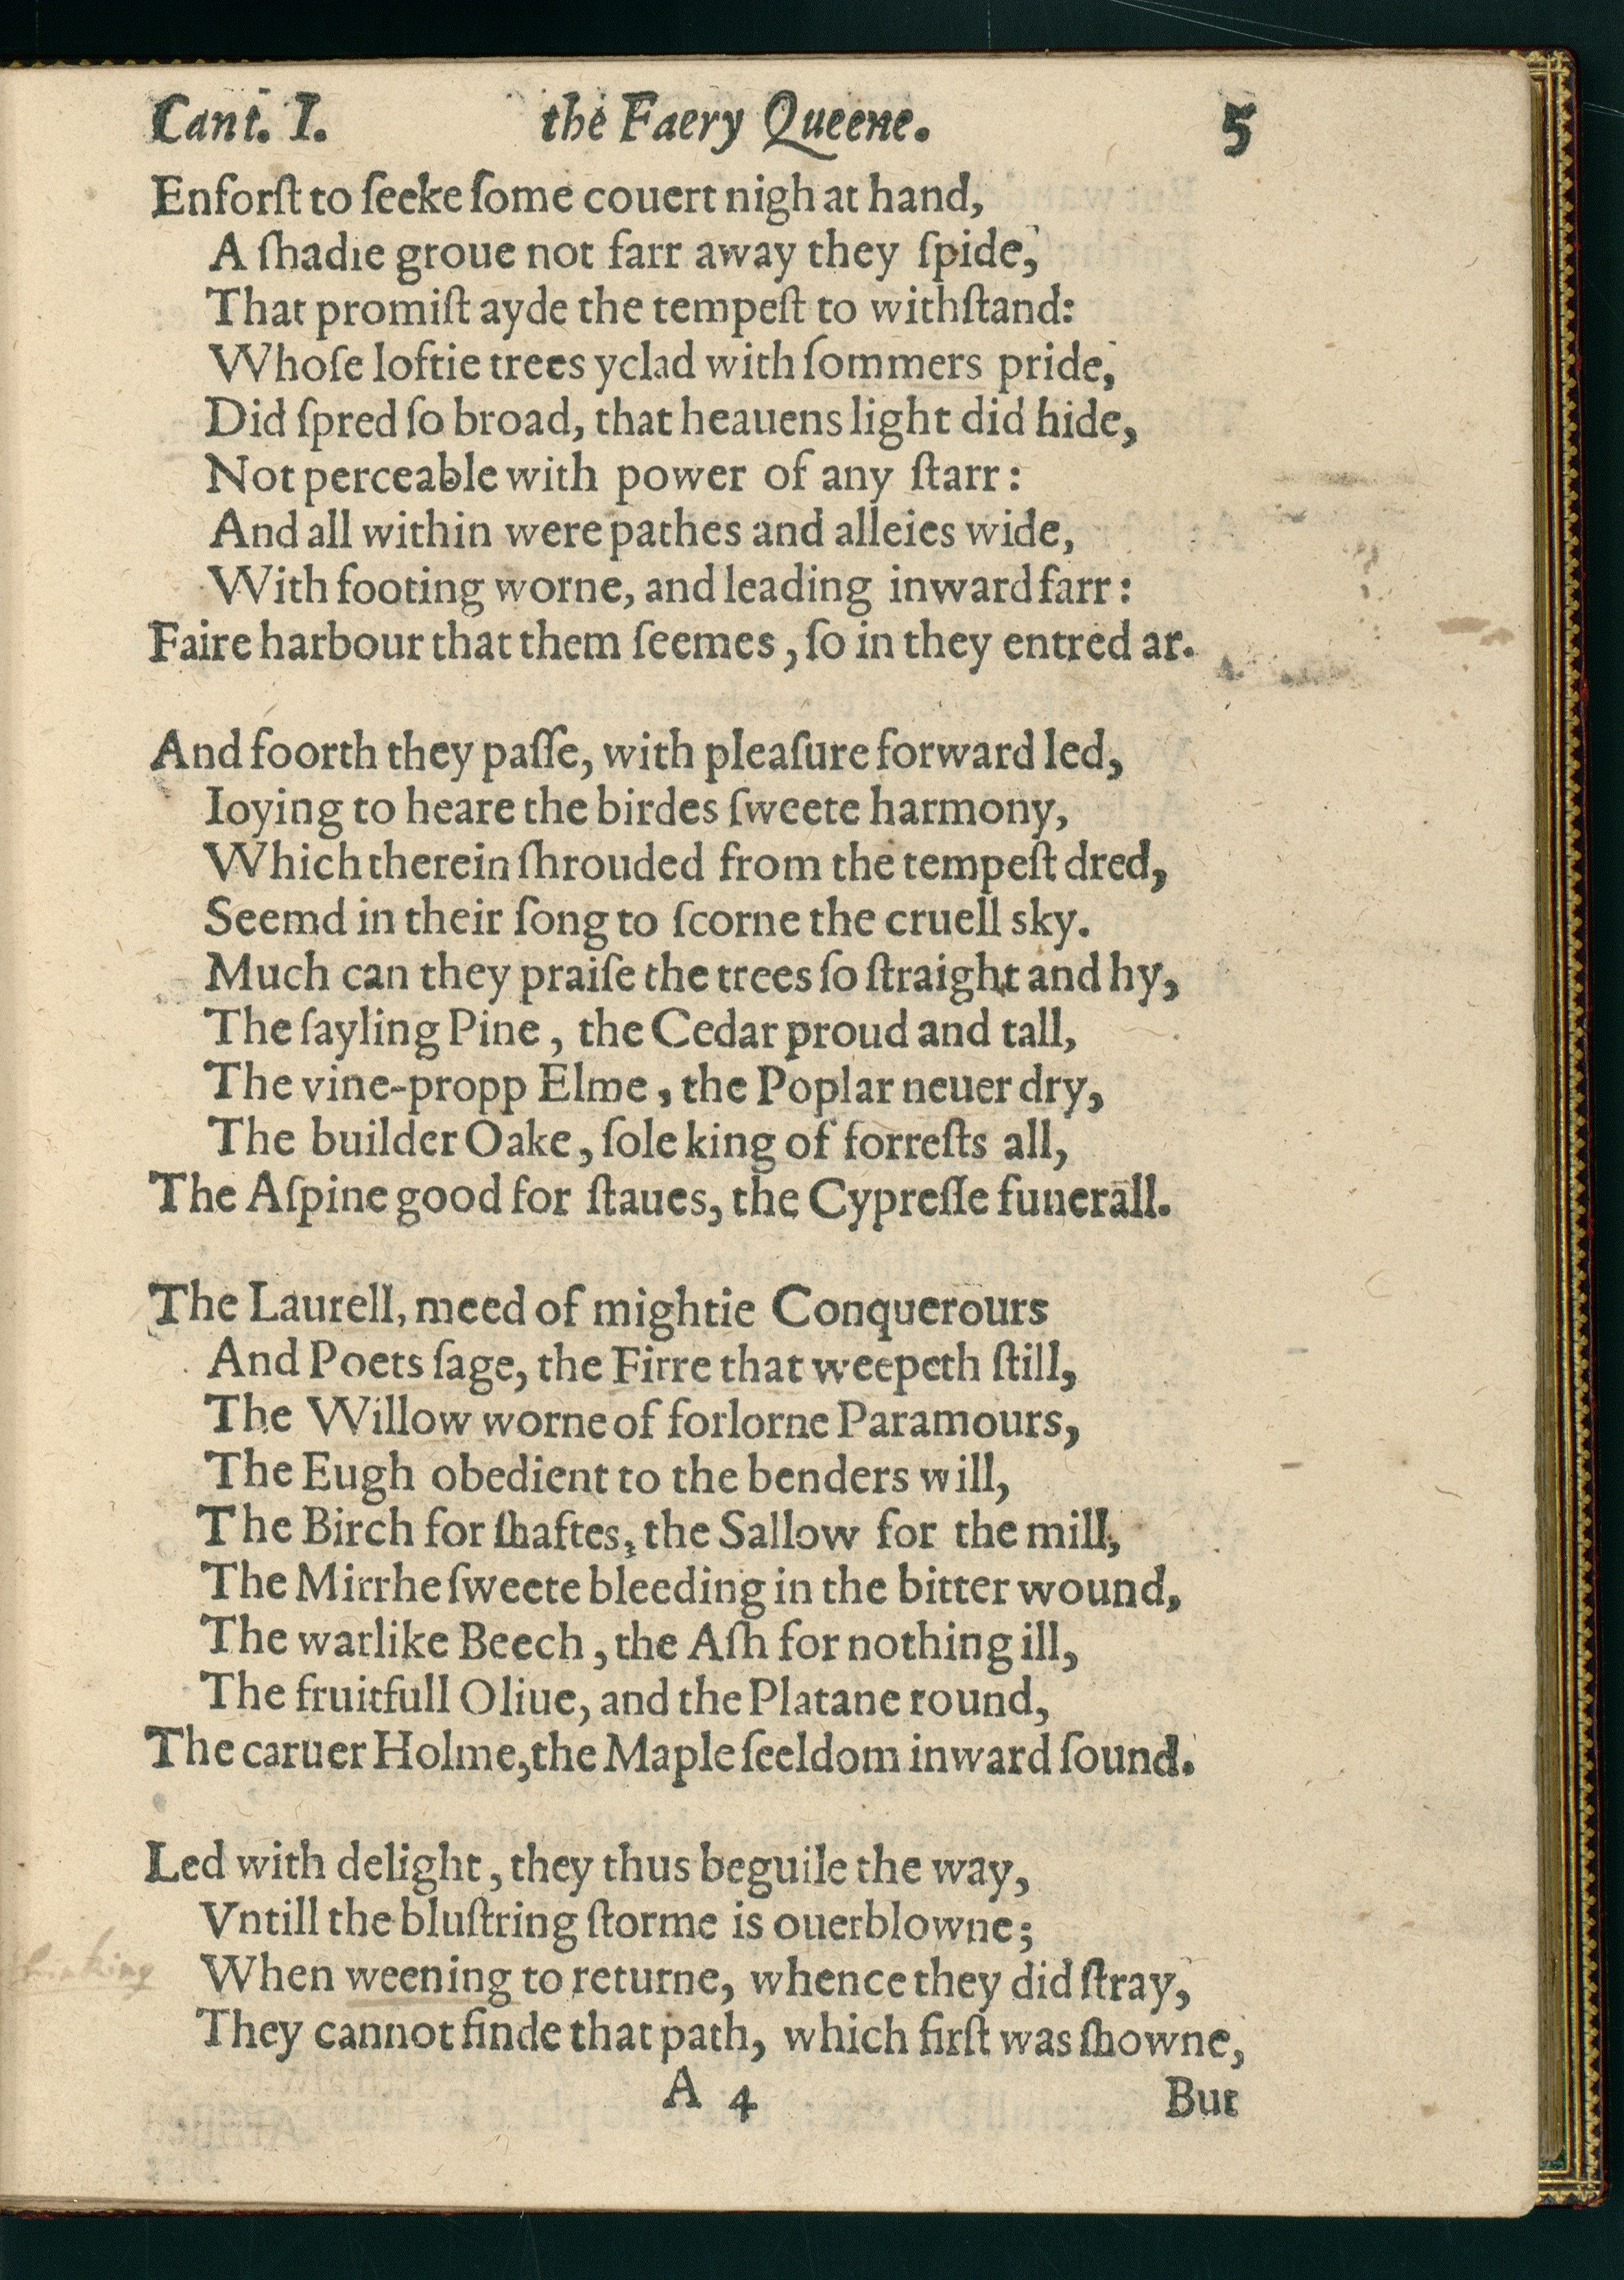 Cant. I. the Faery Queene. 5
Enforſt to ſeeke ſome couert nigh at hand,
A ſhadie groue not farr away they ſpide,
That promiſt ayde the tempeſt to withſtand:
Whoſe loftie trees yclad with ſommers pride,
Did ſpred ſo broad, that heauens light did hide,
Not perceable with power of any ſtarr:
And all within were pathes and alleies wide,
With footing worne, and leading inward farr:
Faire harbour that them ſeemes, ſo in they entred ar.
And foorth they paſſe, with pleaſure forward led,
Ioying to heare the birdes ſweete harmony,
Which therein ſhrouded from the tempeſt dred,
Seemd in their ſong to ſcorne the cruell sky.
Much can they praiſe the trees ſo ſtraight and hy,
The ſayling Pine, the Cedar proud and tall,
The vine-propp Elme, the Poplar neuer dry,
The builder Oake, ſole king of forreſts all,
The Aſpine good for ſtaues, the Cypreſſe funerall.
The Laurell, meed of mightie Conquerours
And Poets ſage, the Firre that weepeth ſtill,
The Willow worne of forlorne Paramours,
The Eugh obedient to the benders will,
The Birch for ſhaftes, the Sallow for the mill,
The Mirrhe ſweete bleeding in the bitter wound,
The warlike Beech, the Aſh for nothing ill,
The fruitfull Oliue, and the Platane round,
The caruer Holme, the Maple ſeeldom inward ſound.
Led with delight, they thus beguile the way,
Vntill the bluſtring ſtorme is ouerblowne;
thinking When weening to returne, whence they did ſtray,
They cannot finde that path, which firſt was ſhowne,
A 4 But